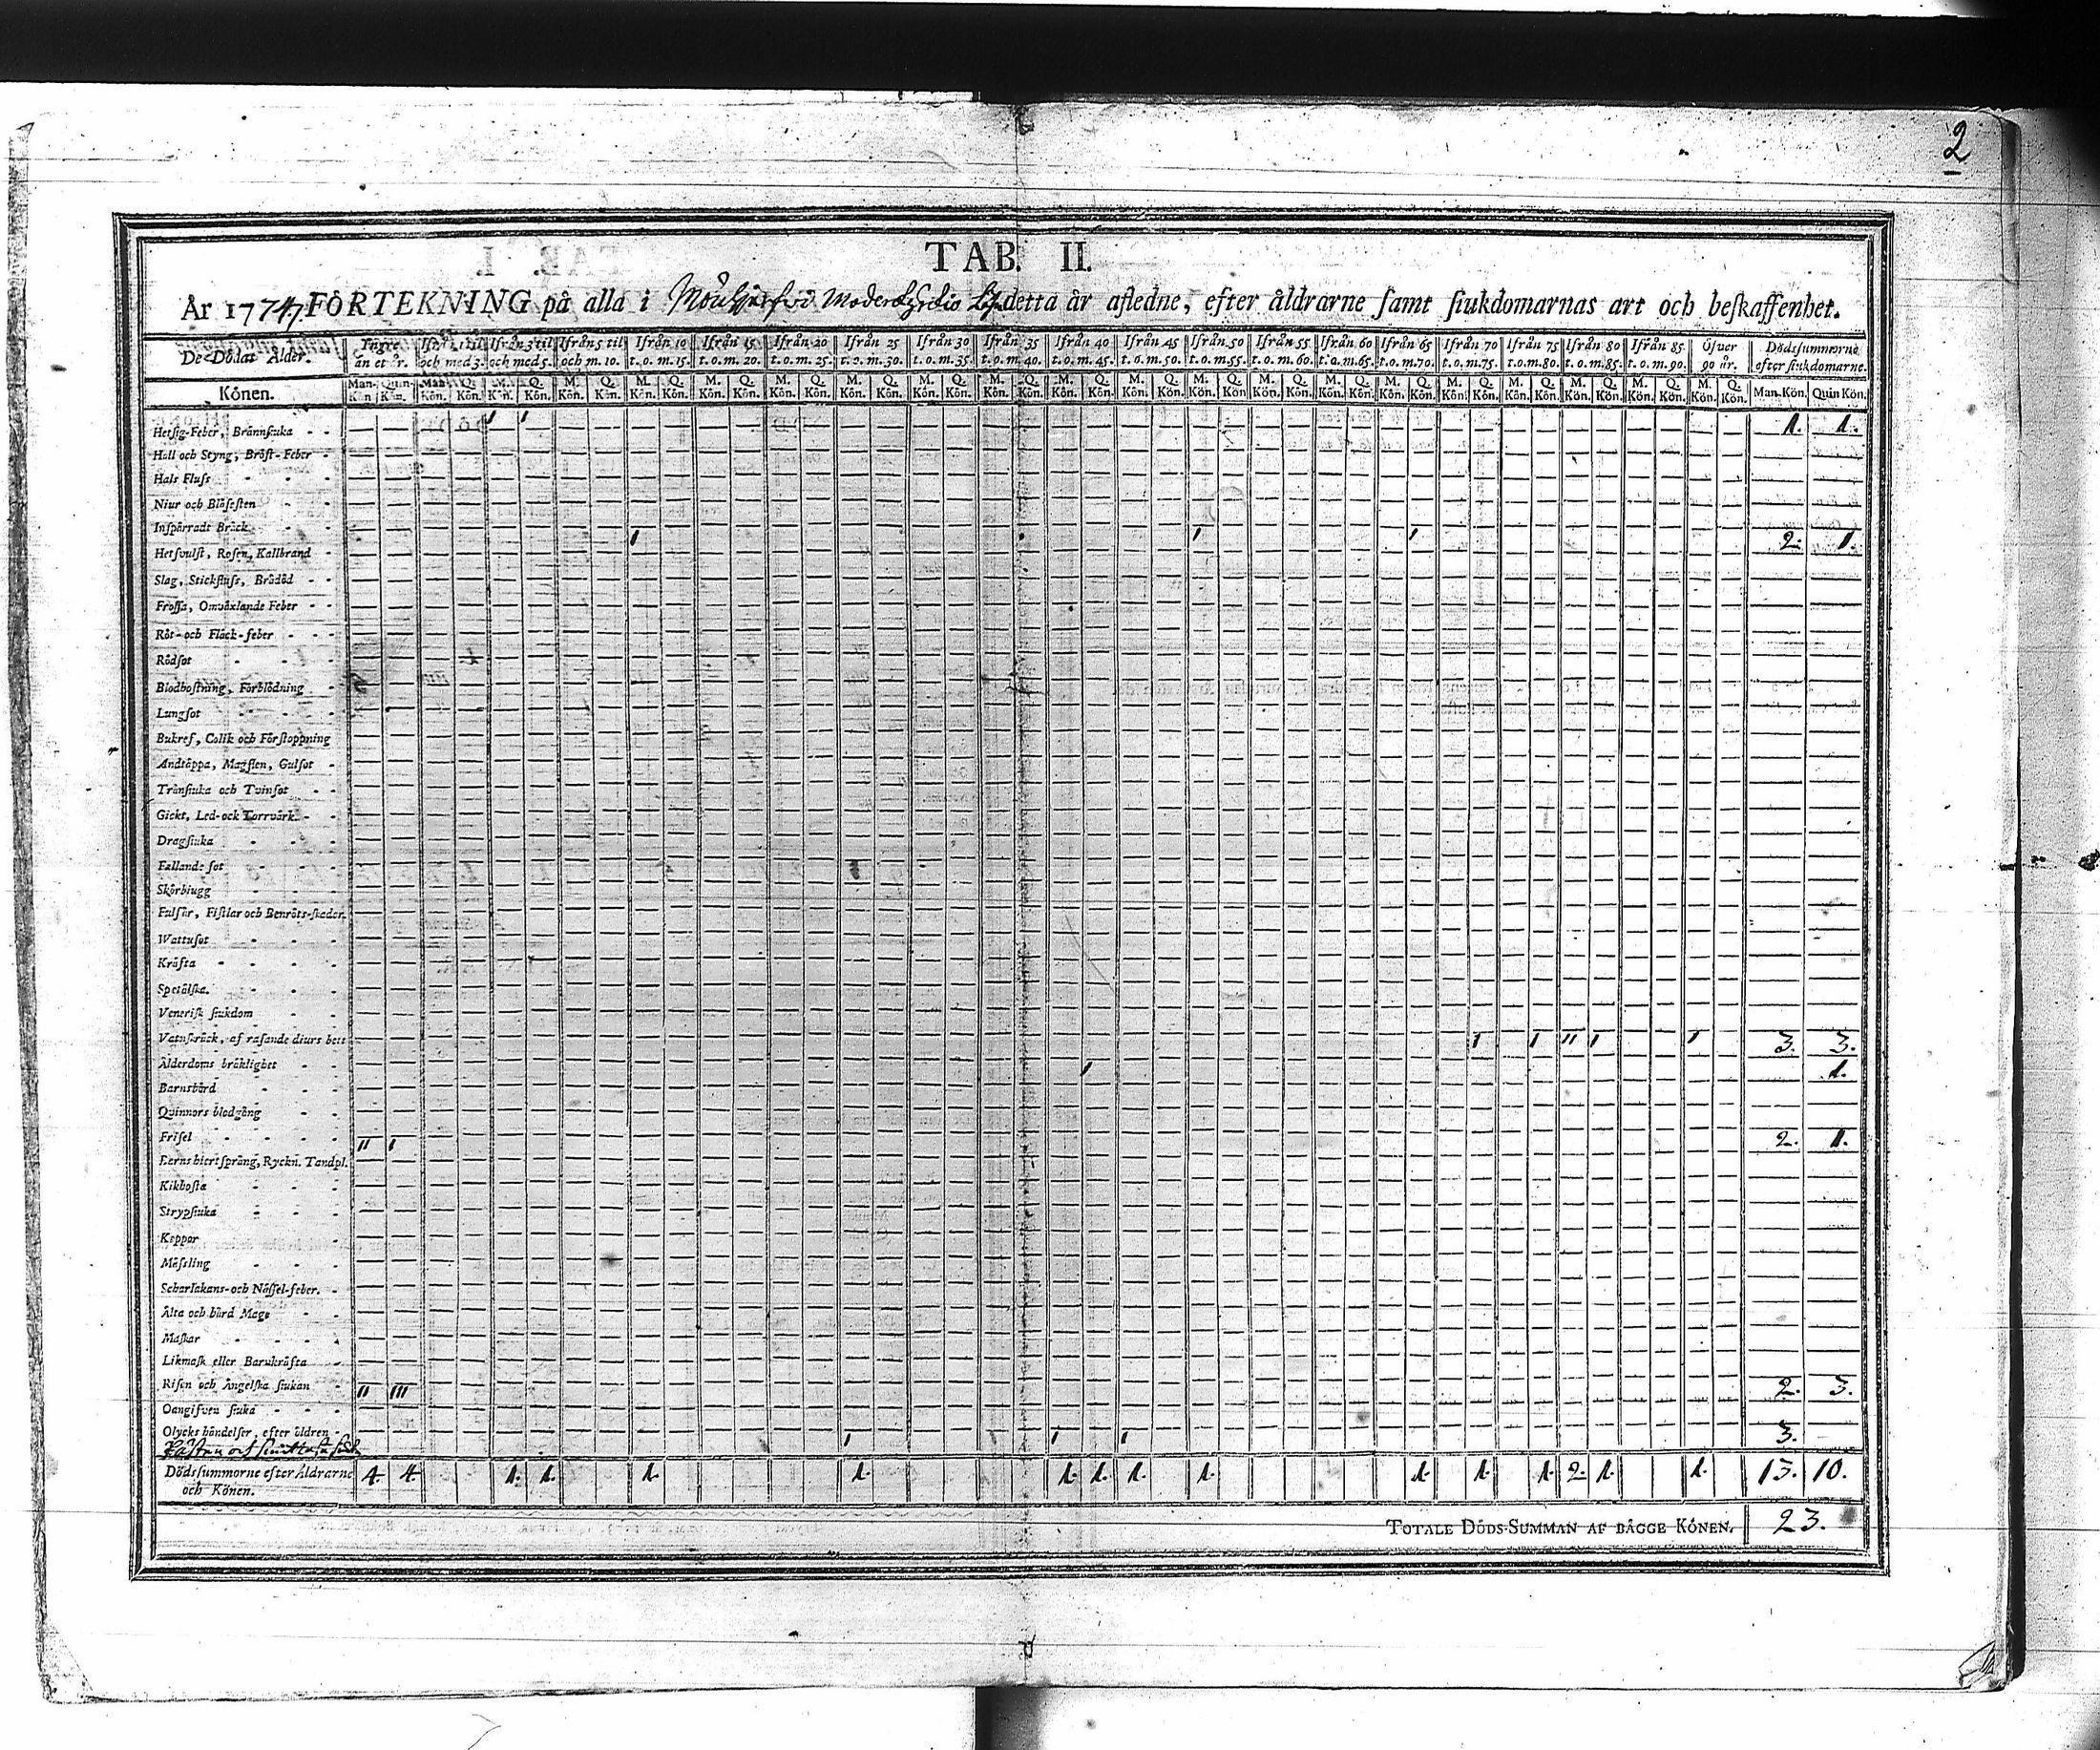 2
TAB. II.
År 1774. FÖRTEKNING på alla i detta år afledne, efter åldrarne samt siukdomarnas art och beskaffenhet.
De Dödas Ålder. Yngre än et år. Ifrån 1 til och med 3. Ifrån 3 til och med 5. Ifrån 5 til och m. 10. Ifrån 10 t. o. m. 15. Ifrån 15 t. o. m. 20. Ifrån 20 t. o. m. 25. Ifrån 25 t. o. m. 30. Ifrån 30 t. o. m. 35. Ifrån 35 t. o. m. 40. Ifrån 40 t. o. m. 45. Ifrån 45 t. o. m. 50. Ifrån 50 t. o. m. 55. Ifrån 55 t. o. m. 60. Ifrån 60 t. o. m. 65. Ifrån 65 t. o. m. 70. Ifrån 70 t. o. m. 75. Ifrån 75 t. o. m. 80. Ifrån 80 t. o. m. 85. Ifrån 85 t. o. m. 90. Öfver 90 år. Dödssummorne efter siukdomarne.
Könen. Man-Kön Quin-Kön. Man-Kön. Q. Kön. M. Kön. Q. Kön. M. Kön. Q. Kön. M. Kön. Q. Kön. M. Kön. Q. Kön. M. Kön. Q. Kön. M. Kön. Q. Kön. M. Kön. Q. Kön. M. Kön. Q. Kön. M. Kön. Q. Kön. M. Kön. Q. Kön. M. Kön. Q. Kön. M. Kön. Q. Kön. M. Kön. Q. Kön. M. Kön. Q. Kön. M. Kön. Q. Kön. M. Kön. Q. Kön. M. Kön. Q. Kön. M. Kön. Q. Kön. M. Kön. Q. Kön. Man. Kön. Quin Kön.
Hetsig-Feber, Brännsiuka - - 1 1 1. 1.
Håll och Styng, Bröst-Feber -
Hals Fluss
Niur och Blåsesten
Inspärradt Bråck
Hetsvulst, Rosen, Kallbrand - 1 1 1 2. 1.
Slag, Stickfluss, Brådöd - -
Frossa, Omväxlande Feber - -
Röt- och Fläck-feber - - -
Rödsot
Blodhostning, Förblödning -
Lungsot
Bukref, Colik och Förstoppning
Andtäppa, Magsten, Gulsot -
Trånsiuka och Tvinsot - -
Gickt, Led- ock Torrvärk -
Dragsiuka
Fallande sot
Skörbiugg
Fulsår, Fistlar och Benröts-skador.
Wattusot
Kräfta
Spetälska.
Venerisk siukdom
Vatnskräck, af rasande diurs bett
Ålderdoms bräklighet 1 1 11 1 1 3. 3.
Barnsbörd 1 1.
Quinnors blodgång
Frisel
Barns hiertsprång, Ryckn. Tandpl. 11 1 2. 1.
Kikhosta
Strypsiuka
Koppor
Mässling
Scharlakans- och Nässel-feber. -
Älta och hård Mage
Maskar
Likmask eller Barnkräfta
Risen och Ängelska siukan
Oangifven siuka 11 111 2. 3.
Olycks händelser, efter äldren 1 1 1 3.
Dödssummorne efter Åldrarne och Könen. 4. 4. 1. 1. 1. 1. 1. 1. 1. 1. 1. 1. 1. 2. 1. 1. 13. 10.
TOTALE DÖDS-SUMMAN AF BÄGGE KÖNEN. 23.